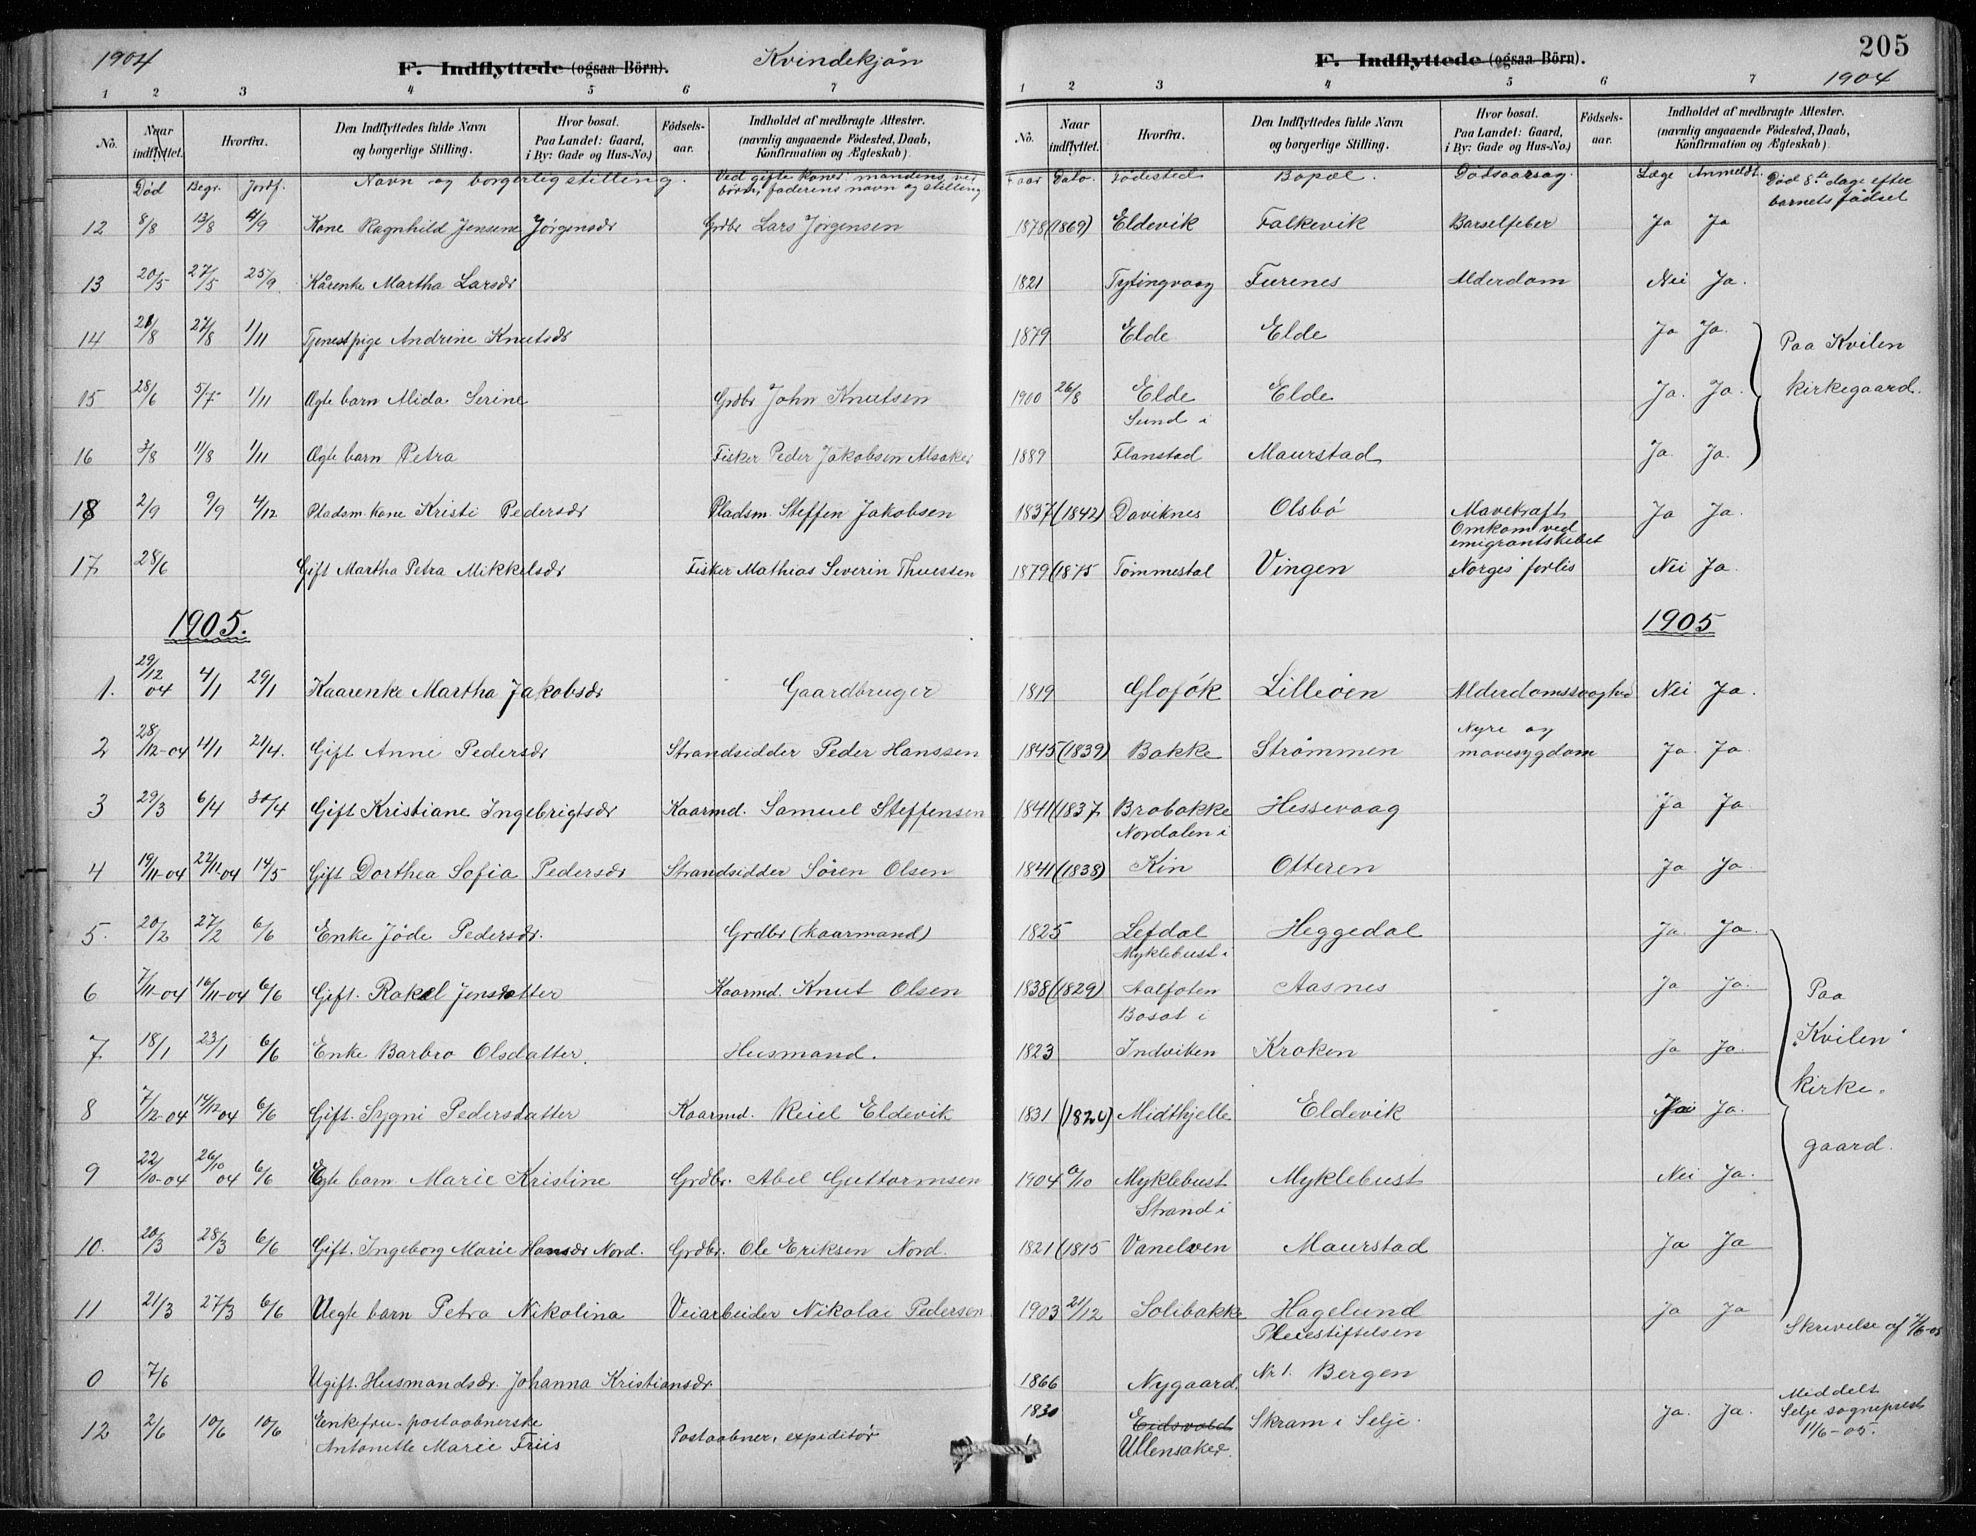 1904 F. Indflyttede (ogsaa Börn). Kvindekjøn
F. Indflyttede (ogsaa Börn). 205
1904
1 2 3 4 5 6 7
1 2 3 4 5 6 7
No. Naar indflyttet. Hvorfra. Den Indflyttedes fulde Navn og borgerlige Stilling. Hvor bosat. Paa Landet: Gaard, i By: Gade og Hus-No.) Födsels-aar. Indholdet af medbragte Attester. (navnlig angaaende Födested, Daab, Konfirmation og Ægteskab)
No. Naar indflyttet. Hvorfra. Den Indflyttedes fulde Navn og borgerlige Stilling. Hvor bosat. Paa Landet: Gaard, i By: Gade og Hus-No.) Födsels-aar. Indholdet af medbragte Attester. (navnlig angaaende Födested, Daab, Konfirmation og Ægteskab)
Død Begr. Jordf. Navn og borgerlig stilling. Ved gifte koner mandens, ved børn, faderens navn og stilling
Faar Dato. Fødested Bopæl. Dødsaarsag. Læge Anmeldt. Død 8te dage efter barnets fødsel
12 8/8 13/8 4/9 Kone Ragnhild Jensine Jørgensdr Grdbr Lars Jørgensen 1878 (1869) Eldevik Falkevik Barselfeber Ja Ja
13 20/5 27/5 25/9 Kårenke Martha Larsdr 1821 Tytingvaag Furenes Alderdom Nei Ja.
14 21/8 27/8 1/11 Tjenestpige Andrine Knutsdr 1879 Elde Elde Ja Ja.
Paa Kvilen kirkegaard.
15 28/6 5/7 1/11 Ægte barn Alida Serine Grdbr John Knutsen 1900 26/8 Elde Elde Ja. Ja.
16 3/8 11/8 1/11 Ægte barn Petra Fisker Peder Jakobsen Alsaker 1889 Sund i Flanstad Maurstad Ja. Ja.
18 2/9 9/9 4/12 Pladsm. kone Kristi Pedersdr Pladsm. Steffen Jakobsen 1837 (1842) Daviknes Olsbø Mavekræft Ja Ja.
17. 28/6 Gift Martha Petra Mikkelsdr Fisker Mathias Severin Thuessen 1879 (1875 Tømmestøl Vingen Omkom ved emigrantskibet Norges forlis Nei Ja
1905. 1905
1. 29/12 04 4/1 29/1 Kaarenke Martha Jakobsdr Gaardbruger 1819 Glofök Lilleøen Nei Ja.
2 28/12-04 4/1 21/4. Gift Anne Pedersdr Strandsidder Peder Hanssen 1845 (1839) Bakke Strømmen Nyre og mavesygdom Ja Ja.
3 29/3 6/4 30/4 Gift Kristiane Ingebrigtsdr Kaarmd. Samuel Steffensen 1841 (1837 Brobakke Hessevaag Ja Ja.
4 19/11-04 22/11-04 14/5 Gift Dorthea Sofia Pedersdr Strandsidder Søren Olsen 1841 (1838) Nordalen i Kin Otteren Ja Ja
5. 20/2 27/2 6/6 Enke Jøde Pedersdr. Grdbr (kaarmand) 1825 Lefdal Heggedal Ja. Ja.
6 7/11-04 16/11-04 6/6 Gift. Rakel Jensdatter Kaarmd. Knut Olsen 1838 (1829) Myklebust i Aalfoten Aasnes Ja Ja.
Paa "Kvilen" kirkegaard.
7 18/1 23/1 6/6 Enke Barbro Olsdatter. Husmand. 1823 Bosat i Indviken Kroken Ja Ja.
8 7/12-04 14/12 04 6/6 Gift. Sygni Pedersdatter Kaarmd. Reiel Eldevik 1831 (1820) Midthjelle Eldevik Ja.
9 22/10-04 26/10 04 6/6 Egte barn Marie Kristine Grdbr. Abel Guttormsen 1904 6/10 Myklebust Myklebust Nei Ja.
10. 20/3 28/3 6/6 Gift. Ingeborg Marie Hansdr Nord. Grdbr. Ole Eriksen Nord. 1821 (1815 Strand i Vanelven Maurstad Ja Ja
11 21/3 27/3 6/6 Uegte barn Petra Nikolina Veiarbeider Nikolai Pedersen 1903 21/12 Solibakke Hagelund Ja Ja
0 7/6 Ugift. Husmandsdr. Johanna Kristiansdr 1866 Nygaard. Pleiestiftelsen Nr 1. Bergen Skrivelse af 7/6-05
12 2/6 10/6 10/6 Enkefru postaabnerske Antonette Marie Friis Postaabner, expeditör 1830 Eidsvold Ullensaker. Skram i Selje. Ja. Ja. Meddelt Selje sogneprest 11/6-05.